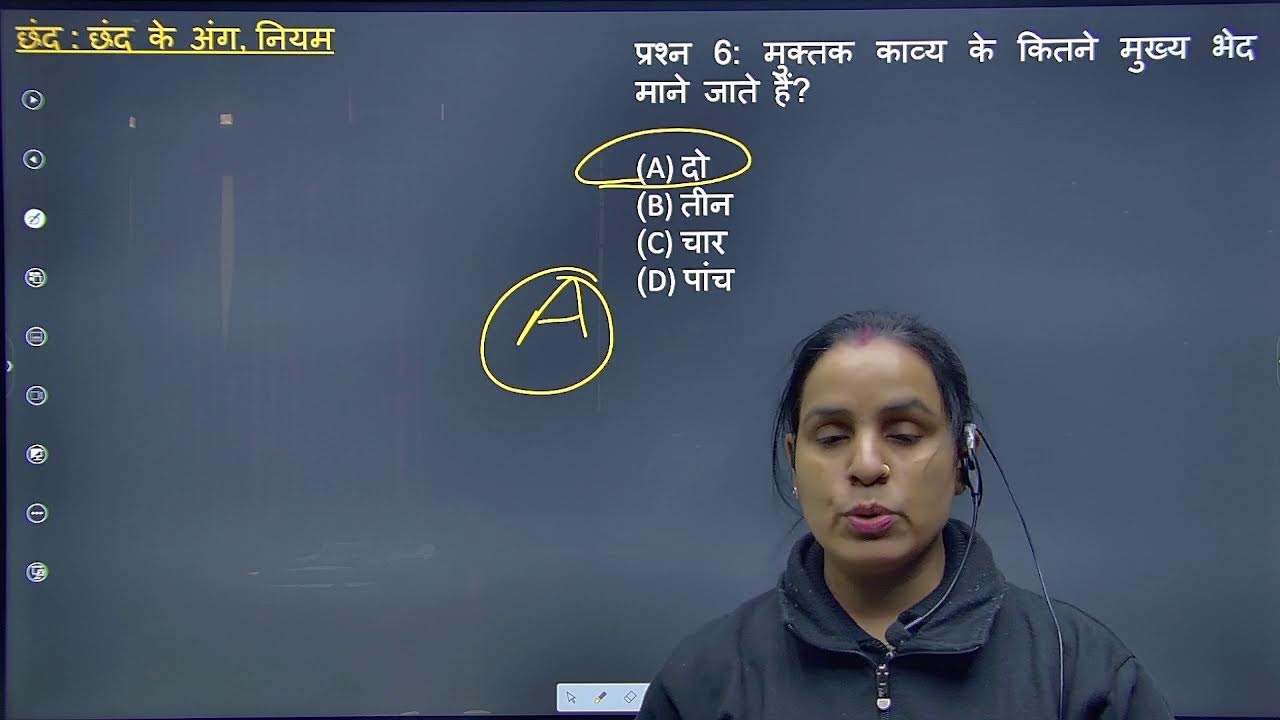 छंद : छंद के अंग, नियम
प्रश्न 6: मुक्तक काव्य के कितने मुख्य भेद
माने जाते हैं?
(A) दो
(B) तीन
(C) चार
(D) पांच
A